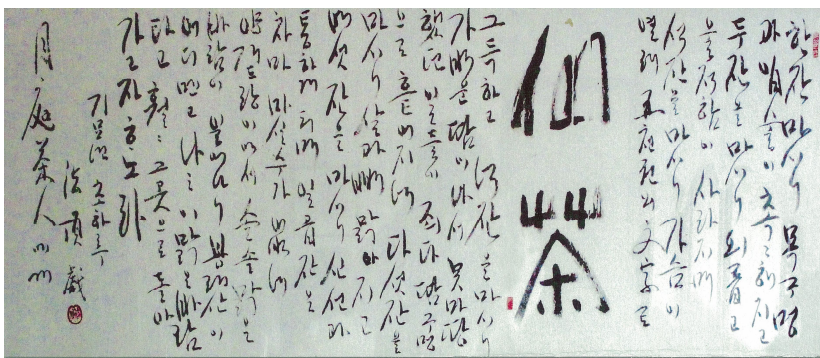 한 잔 마시니 목구멍
과 입술이 촉촉해지고
두 잔을 마시니 외롭고
울적함이 사라지며
석 잔을 마시니 가슴이
열려 五千권의 文字로
仙茶
그득하고 넉 잔을 마시니
가벼운 땀이 나서 못마땅
했던 일들이 죄다 땀구멍
으로 흩어지네 다섯 잔을
마시니 살과 뼈 맑아지고
여섯 잔을 마시니 신선과
통하게 되며 일곱 잔은
차마 마실 수가 없네
양 겨드랑이에서 솔솔 맑은
바람이 불어오니 봉래산이
어디멘고 나는 이 맑은 바람
타고 훨훨 그곳으로 돌아
가고자 하노라
기묘년 초하루
法頂 戱
月庭茶人에게